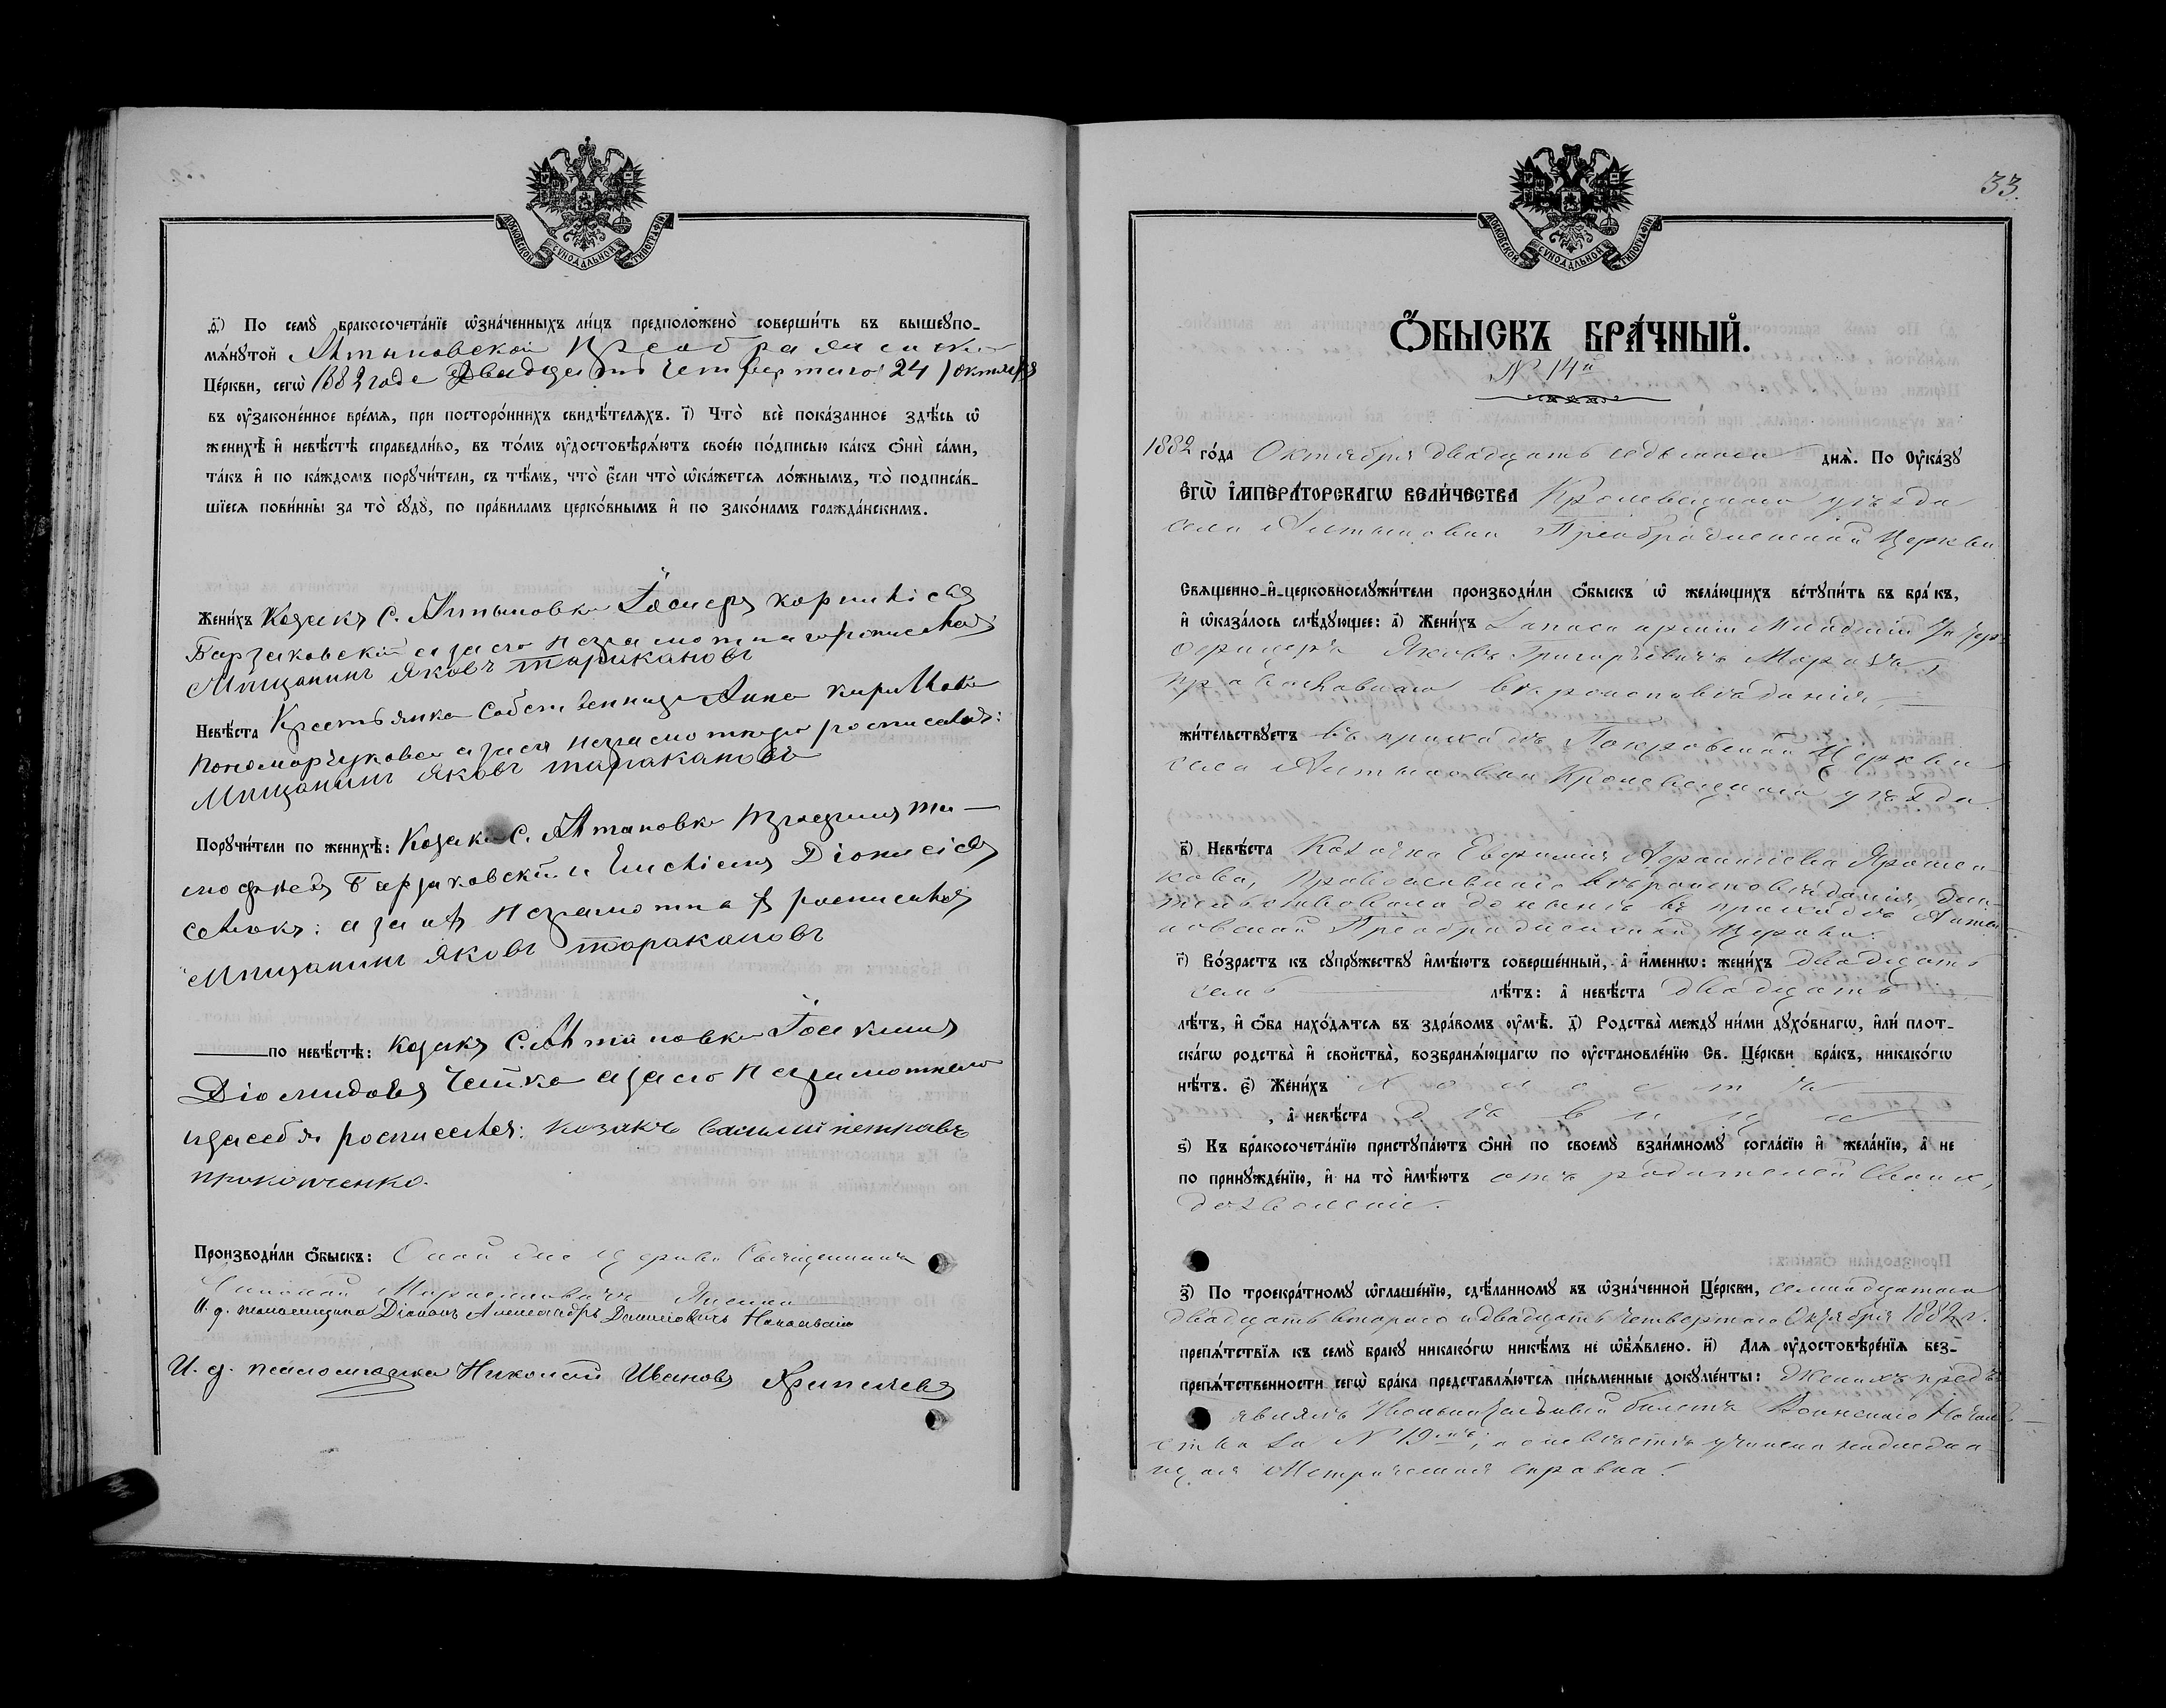 МОСКОВСКОЙ СѴНОДАЛЬНОЙ ТИПОГРАФІИ
д҃) По семꙋ̀ бракосочета́нїе ѡ҆зна́ченныхъ ли́цъ предположено̀ соверши́ть въ вышеꙋпо-
мѧ́нꙋтой Алтыновской Преображенской
Це́ркви, сегѡ̀ 1882 года Двадцать Четвертаго 24 октября
въ ѹ҆законе́нное вре́мѧ, при посторо́ннихъ свидѣ́телѧхъ. і҃) Что̀ всѐ пока́занное здѣ́сь ѡ҆
женихѣ̀ и҆ невѣ́стѣ справедли́во, въ то́мъ ѹ҆достовѣрѧ́ютъ свое́ю по́дписью ка́къ ѻ҆нѝ са́ми,
та́къ и҆ по ка́ждомъ порꙋчи́тели, съ тѣ́мъ, что̀ є҆́сли что̀ ѡ҆ка́жетсѧ ло́жнымъ, то̀ подписа́в-
шїесѧ пови́нны за то̀ сꙋдꙋ̀, по пра́виламъ церко́внымъ и҆ по зако́намъ гражда́нскимъ.
Жени́хъ Козакъ С. Алтыновки
Барзаковскій а за его неграмотнаго росписался
Мѣщанинъ Яковъ Таракановъ
Невѣ́ста Крестьянка Собственница Анна Кирилова
Пономарчукова а за ея неграмотную росписался:
Мѣщанинъ Яковъ Таракановъ
Порꙋчи́тели по женихѣ̀: Козаки С. Алтыновки
Барзаковскій и Дионисіевъ
а за ихъ неграмотныхъ росписался
Мѣщанинъ Яковъ Таракановъ
по невѣ́стѣ: Козакъ С. Алтыновки
Діомидовъ а за его неграмотнаго
и за себя росписался: козакъ василий петровъ
прокопченко.
Произво́дили ѻ҆́быскъ: Оной же церкви Священникъ
И. д. псаломщика Діаконъ Александръ
И. д. псаломщика Николай Ивановъ
33.
МОСКОВСКОЙ СѴНОДАЛЬНОЙ ТИПОГРАФІИ
Ѻ҆́БЫСКЪ БРА́ЧНЫЙ.
№ 14й
1882 го́да Октября двадцать седьмаго днѧ̀. По Ѹ҆ка́зꙋ
Є҆ГѠ̀ І҆МПЕРА́ТОРСКАГѠ ВЕЛИ́ЧЕСТВА Кролевецкаго уѣзда
села Алтыновки Преображенской Церкви
Свѧще́нно-и҆-церковнослꙋжи́тели производи́ли ѻ҆́быскъ ѡ҆ жела́ющихъ встꙋпи́ть въ бра́къ,
и҆ ѡ҆каза́лось слѣ́дꙋющее: а҃) Жени́хъ Запаса арміи Младшій Ун҃тер
офицеръ Яковъ Григорьевичъ Мороза,
православнаго вѣроисповѣданія,
жи́тельствꙋетъ въ приходѣ Покровской Церкви
села Алтыновки Кролевецкаго уѣзда.
в҃) Невѣ́ста Козачка Евфимия Ярошен-
кова, Православнаго вѣроисповѣданія, жи-
тельствовала до нынѣ въ приходѣ Алты-
новской Преображенской Церкви.
г҃) Во́зрастъ къ сꙋпрꙋ́жествꙋ и҆мѣ́ютъ соверше́нный, а҆ и҆́меннѡ: жени́хъ двадцать
семь лѣ́тъ: а҆ невѣ́ста двадцать
лѣ́тъ, и҆ ѻ҆́ба нахо́дѧтсѧ въ здра́вомъ ѹ҆мѣ̀. д҃) Родства̀ междꙋ ни́ми дꙋхо́внагѡ, и҆лѝ плот-
ска́гѡ родства̀ и҆ сво́йства̀, возбранѧ́ющагѡ по ѹ҆становле́нїю Св. Це́ркви бра́къ, никако́гѡ
нѣ́тъ. є҃) Жени́хъ холостъ
, а҆ невѣ́ста дѣвица
ѕ҃) Къ бракосочета́нїю пристꙋпа́ютъ ѻ҆нѝ по своемꙋ̀ взаи́мномꙋ согла́сїю и҆ жела́нїю, а҆ не
по принꙋжде́нїю, и҆ на то̀ и҆мѣ́ютъ отъ родителей своихъ,
дозволеніе.
з҃) По троекра́тномꙋ ѡ҆глаше́нїю, сдѣ́ланномꙋ въ ѡ҆зна́ченной Це́ркви, семнадцатаго
двадцать втораго и двадцать четвертаго Октября 1882 г.
препѧ́тствїѧ къ семꙋ̀ бракꙋ никако́гѡ никѣ́мъ не ѡ҆б̾ѧ́влено. и҃) Длѧ ѹ҆достовѣре́нїѧ без-
препѧ́тственности сегѡ̀ бра́ка представлѧ́ютсѧ пи́сьменные докꙋме́нты: Женихъ предъ
явилъ Увольнительный билетъ Воинскаго Началь-
ства за № 19мъ, а о невѣстѣ учинена надлежа-
щая Метрическая справка.